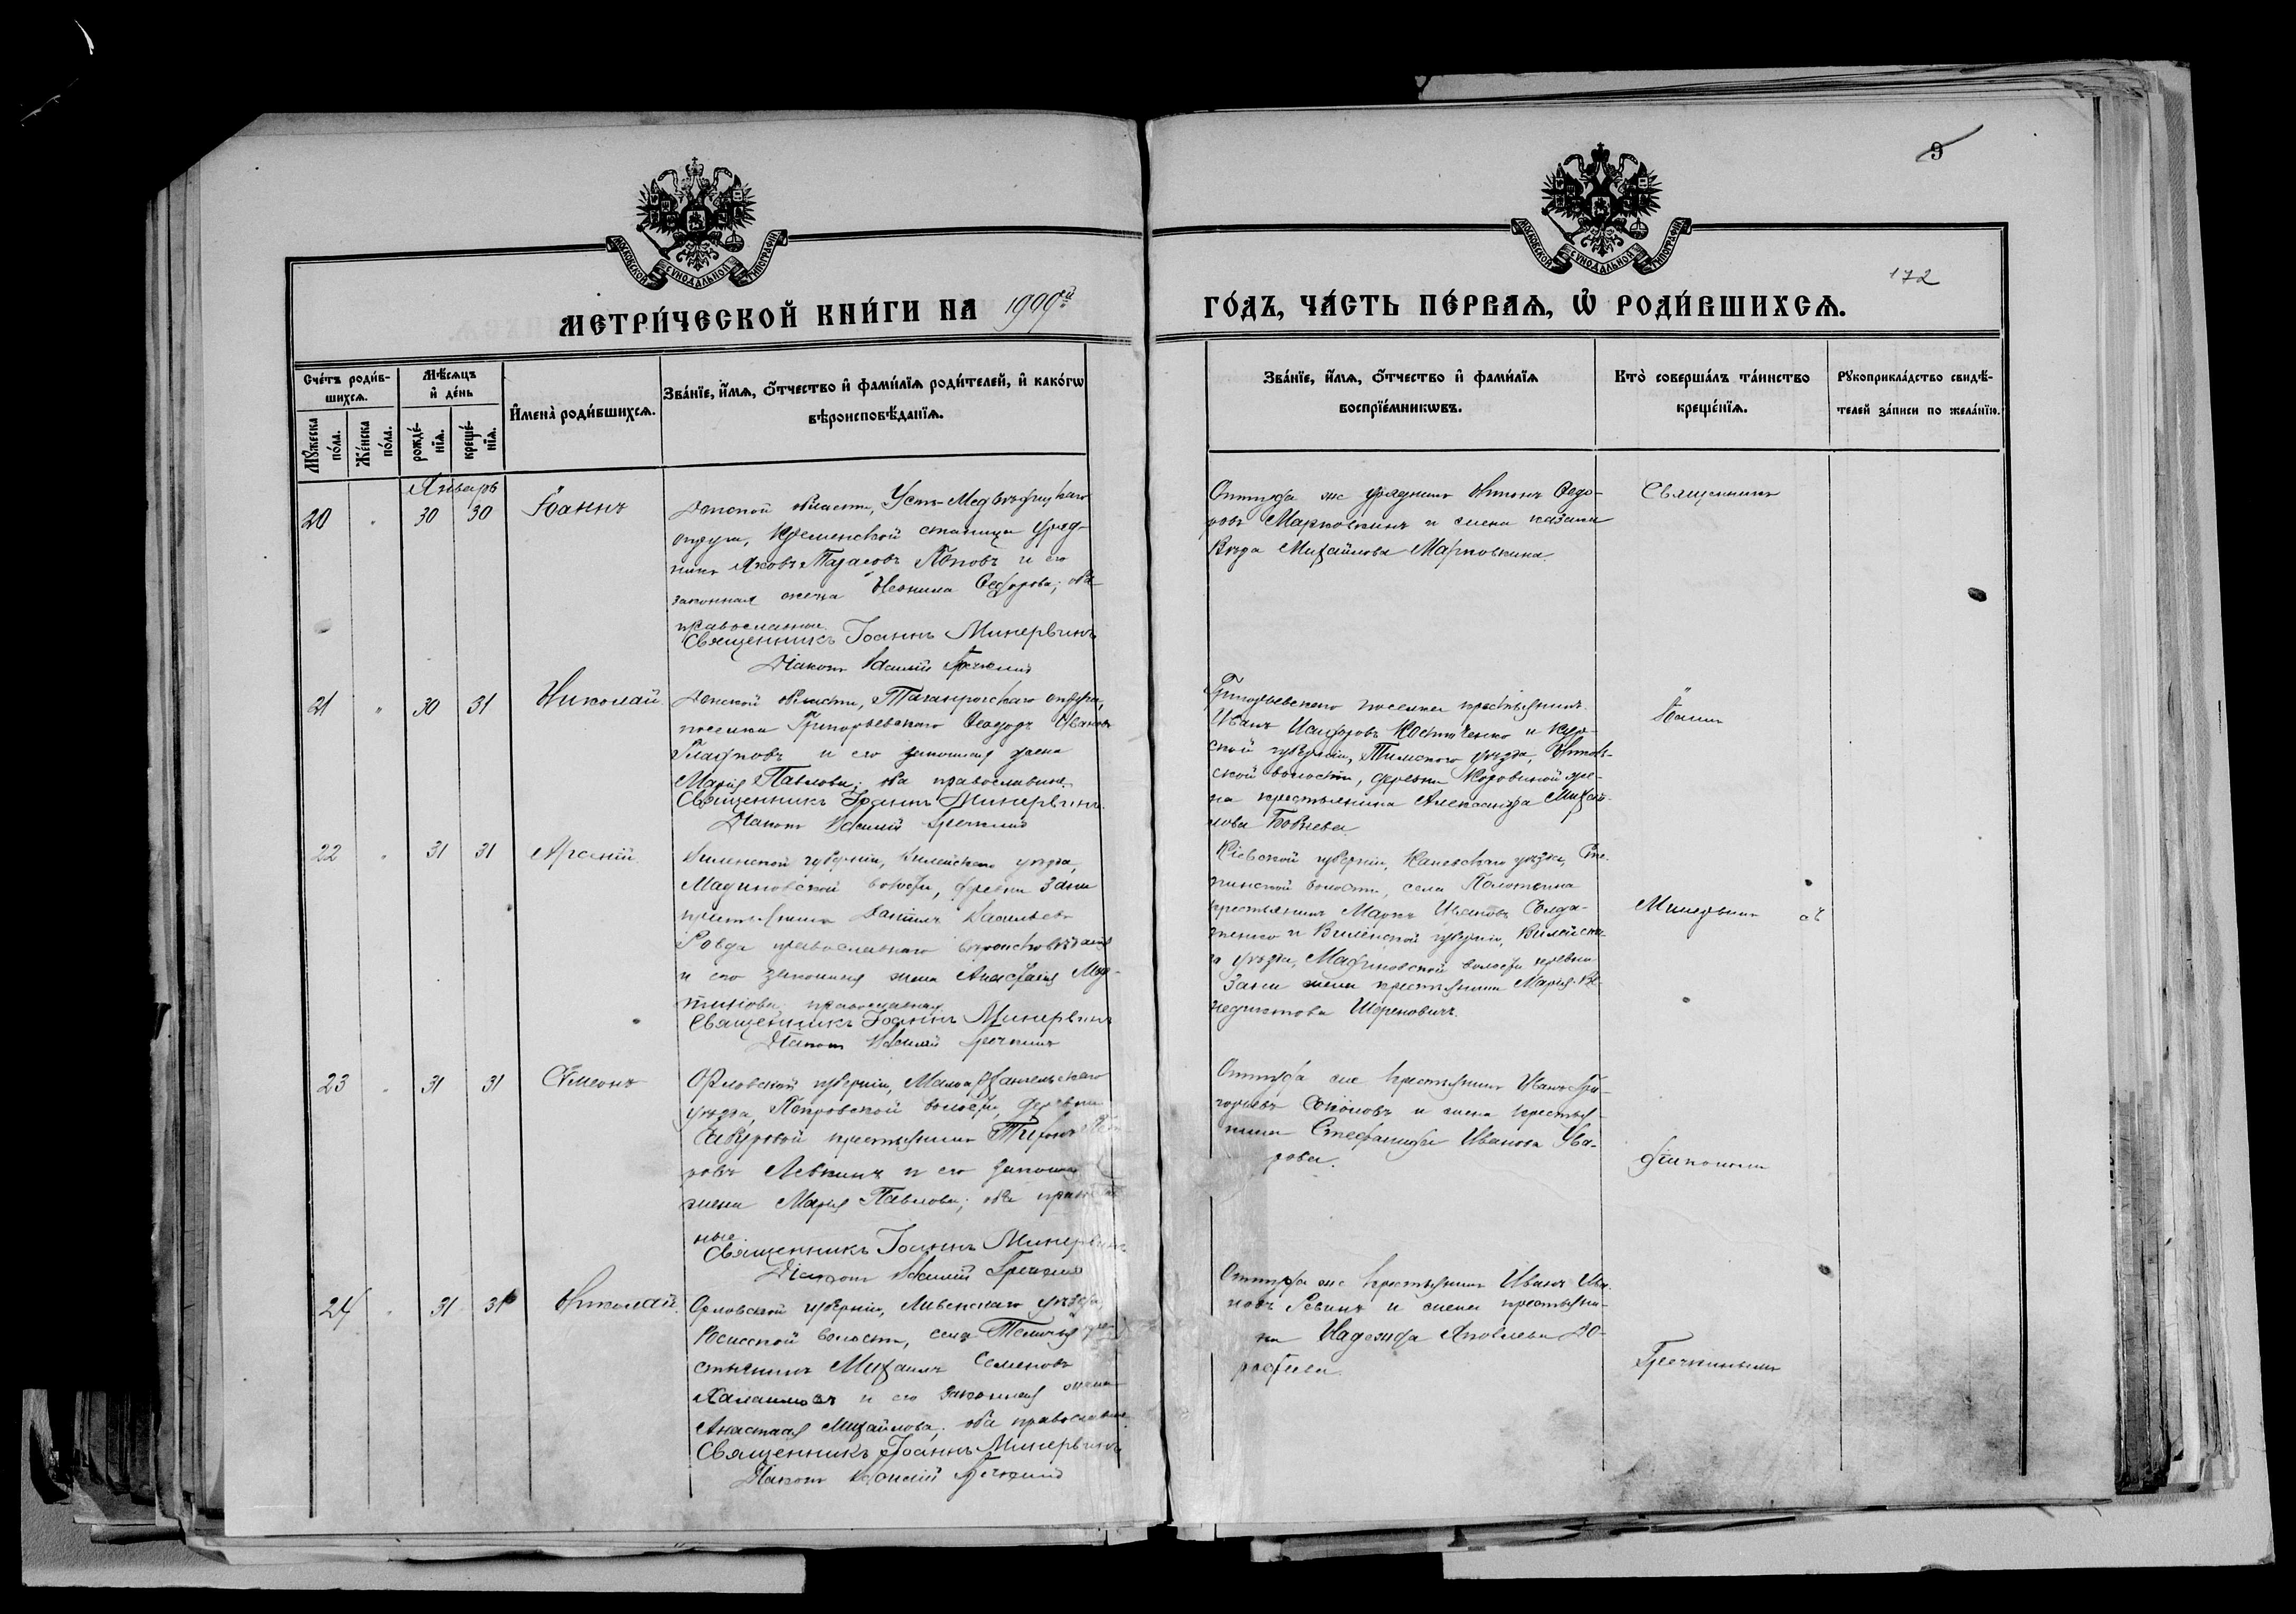 9
172
МОСКОВСКОЙ СѴНОДАЛЬНОЙ ТИПОГРАФІИ
МОСКОВСКОЙ СѴНОДАЛЬНОЙ ТИПОГРАФІИ
МЕТРИ́ЧЕСКОЙ КНИ́ГИ НА 1909й
ГО́ДЪ, ЧА́СТЬ ПЕ́РВАѦ, Ѡ҆ РОДИ́ВШИХСѦ.
Сче́тъ роди́в-
шихсѧ.
Мꙋ́жеска
по́ла.
Же́нска
по́ла.
Мѣ́сѧцъ
и҆ де́нь
рожде́-
нїѧ.
креще́-
нїѧ.
И҆мена̀ роди́вшихсѧ.
Зва́нїе, и҆́мѧ, ѻ҆́тчество и҆ фами́лїѧ роди́телей, и҆ како́гѡ
вѣроисповѣ́данїѧ.
Зва́нїе, и҆́мѧ, ѻ҆́тчество и҆ фами́лїѧ
воспрїе́мникѡвъ.
Кто̀ соверша́лъ та́инство
креще́нїѧ.
Рꙋкоприкла́дство свидѣ́-
телей за́писи по жела́нїю.
Январь
20 " 30 30 Іоаннъ
Донской области, Усть-Медвѣдицкаго
округа, Кременской станицы уряд-
никъ Яковъ Тарасовъ Поповъ и его
законная жена Неонила Ѳедорова; оба
православные.
Священникъ Іоаннъ Минервинъ
Діаконъ Василій Гречкинъ
Оттуда же урядникъ Антонъ Ѳедо-
ровъ Марковкинъ и жена казака
Вѣра Михайлова Марковкина.
Священникъ
21 " 30 31 Николай
Донской области, Таганрогскаго округа,
поселка Григорьевскаго Ѳеодоръ Ивановъ
и его законная жена
Марія Павлова; оба православные.
Священникъ Іоаннъ Минервинъ.
Діаконъ Василій Гречкинъ
Григорьевскаго поселка крестьянинъ
Иванъ Костюченко и Кур-
ской губерніи, Тимскаго уѣзда,
ской волости, деревни Коровиной же-
на крестьянина Александра Михай-
лова
Іоаннъ
22 " 31 31 Арсеній
Виленской губерніи, Вилейскаго уѣзда,
волости, деревни
крестьянинъ Даніилъ Васильевъ
Ровда православнаго вѣроисповѣданія
и его законная жена Анастасія Мар-
тинова, православная.
Священникъ Іоаннъ Минервинъ
Діаконъ Василій Гречкинъ
Кіевской губерніи, Каневскаго уѣзда, Сте-
пинской волости, села
крестьянинъ Маркъ Ивановъ Солда-
тенко и Виленской губерніи, Вилейска-
го уѣзда, волости деревни
жена крестьянина Марія Ве-
недиктова
Минервинъ съ
23 " 31 31 Сѵмеонъ
Орловской губерніи, Малоархангельскаго
уѣзда, Покровской волости, деревни
крестьянинъ Трифонъ
ровъ Левкинъ и его законная
жена Марія Павлова; оба право
ные.
Священникъ Іоаннъ Минервинъ
Діаконъ Василій Гречкинъ
Оттуда же крестьянинъ Иванъ Гри-
горьевъ и жена крестья-
нина Стефанида Иванова Ува-
рова.
діакономъ
24 " 31 31 Николай.
Орловской губерніи, Ливенскаго уѣзда,
волости, села кре-
стьянинъ Михаилъ Семеновъ
и его законная жена
Анастасія Михайлова; оба православные.
Священникъ Іоаннъ Минервинъ
Діаконъ Василій Гречкинъ
Оттуда же крестьянинъ Иванъ Ива-
новъ Ревинъ и жена крестьяни-
на Надежда Яковлева До-
рофѣева.
Гречкинымъ